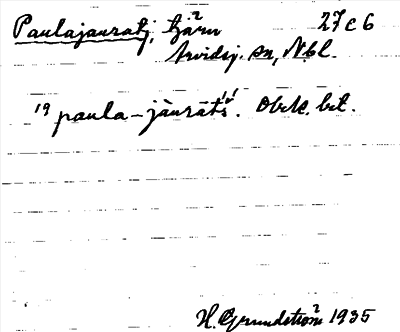 Paulajauratj, tjärn 27c6
Arvidsj. sn, Nbl.
19 paula-jàurátš́. Obek. bet.
H. Grundström 1935